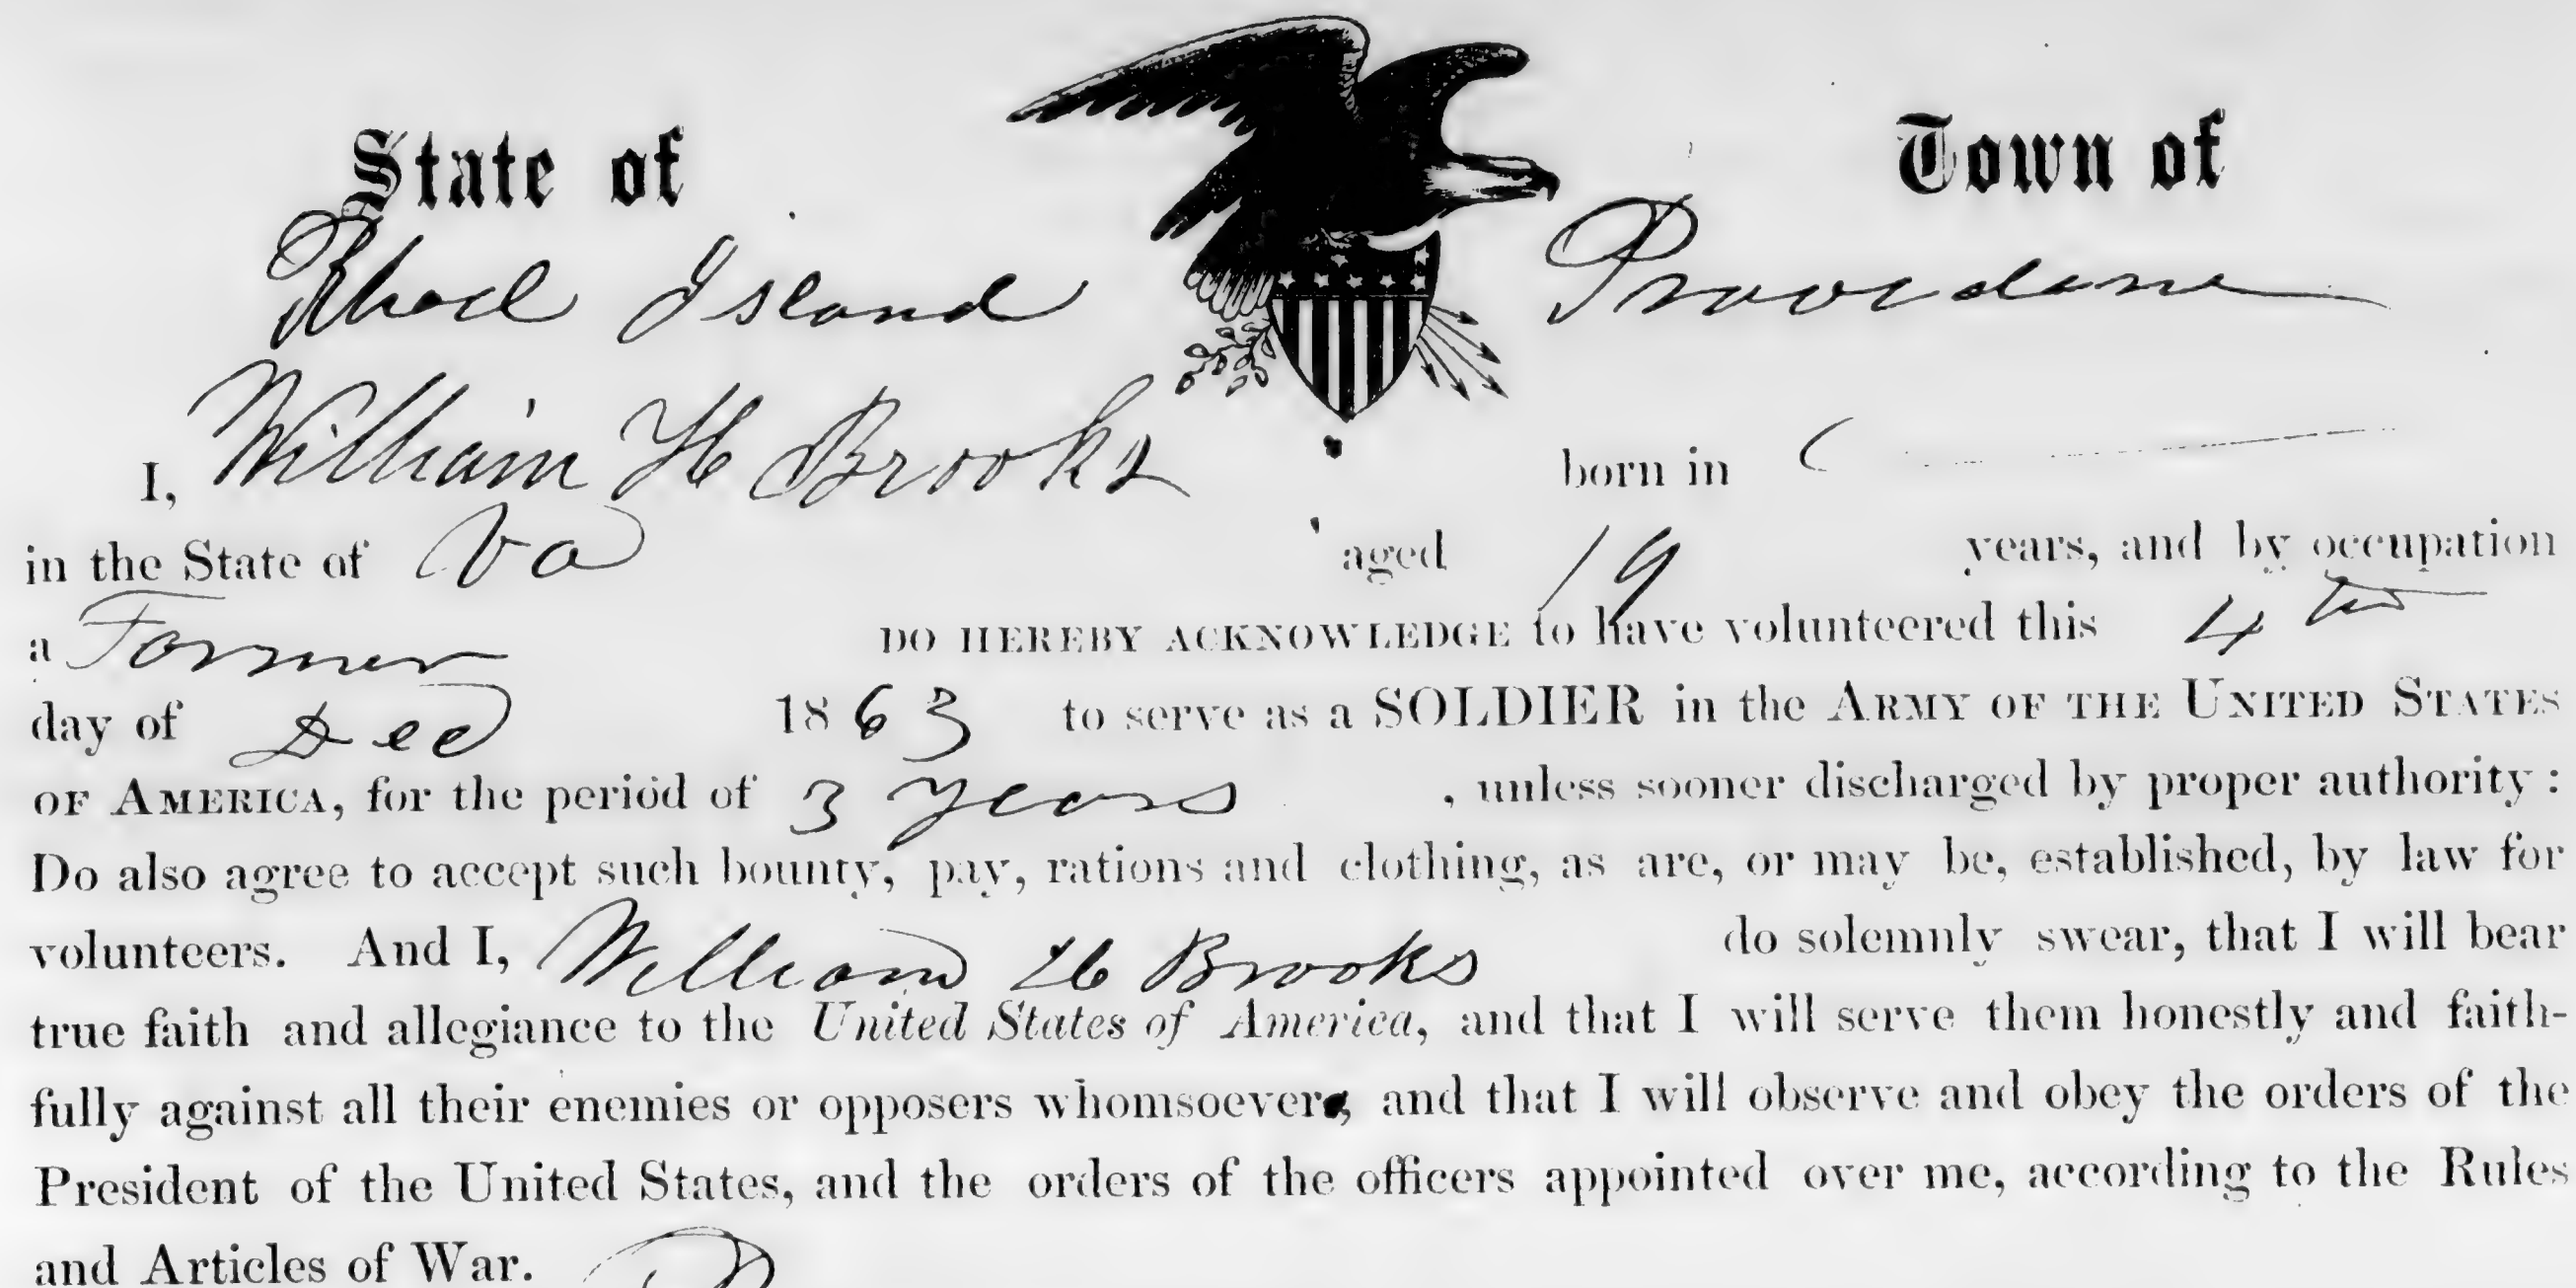 State of Town of
Rhode Island Providence
I, William H Brooks born in
in the State of Va aged 19 years, and by occupation
a Farmer DO HEREBY ACKNOWLEDGE to have volunteered this 4th
day of Dec 1863 to serve as a SOLDIER in the ARMY OF THE UNITED STATES
OF AMERICA, for the period of 3 years , unless sooner discharged by proper authority :
Do also agree to accept such bounty, pay, rations and clothing, as are, or may be, established, by law for
volunteers. And I, William H Brooks do solemnly swear, that I will bear
true faith and allegiance to the United States of America, and that I will serve them honestly and faith-
fully against all their enemies or opposers whomsoever, and that I will observe and obey the orders of the
President of the United States, and the orders of the officers appointed over me, according to the Rules
and Articles of War.